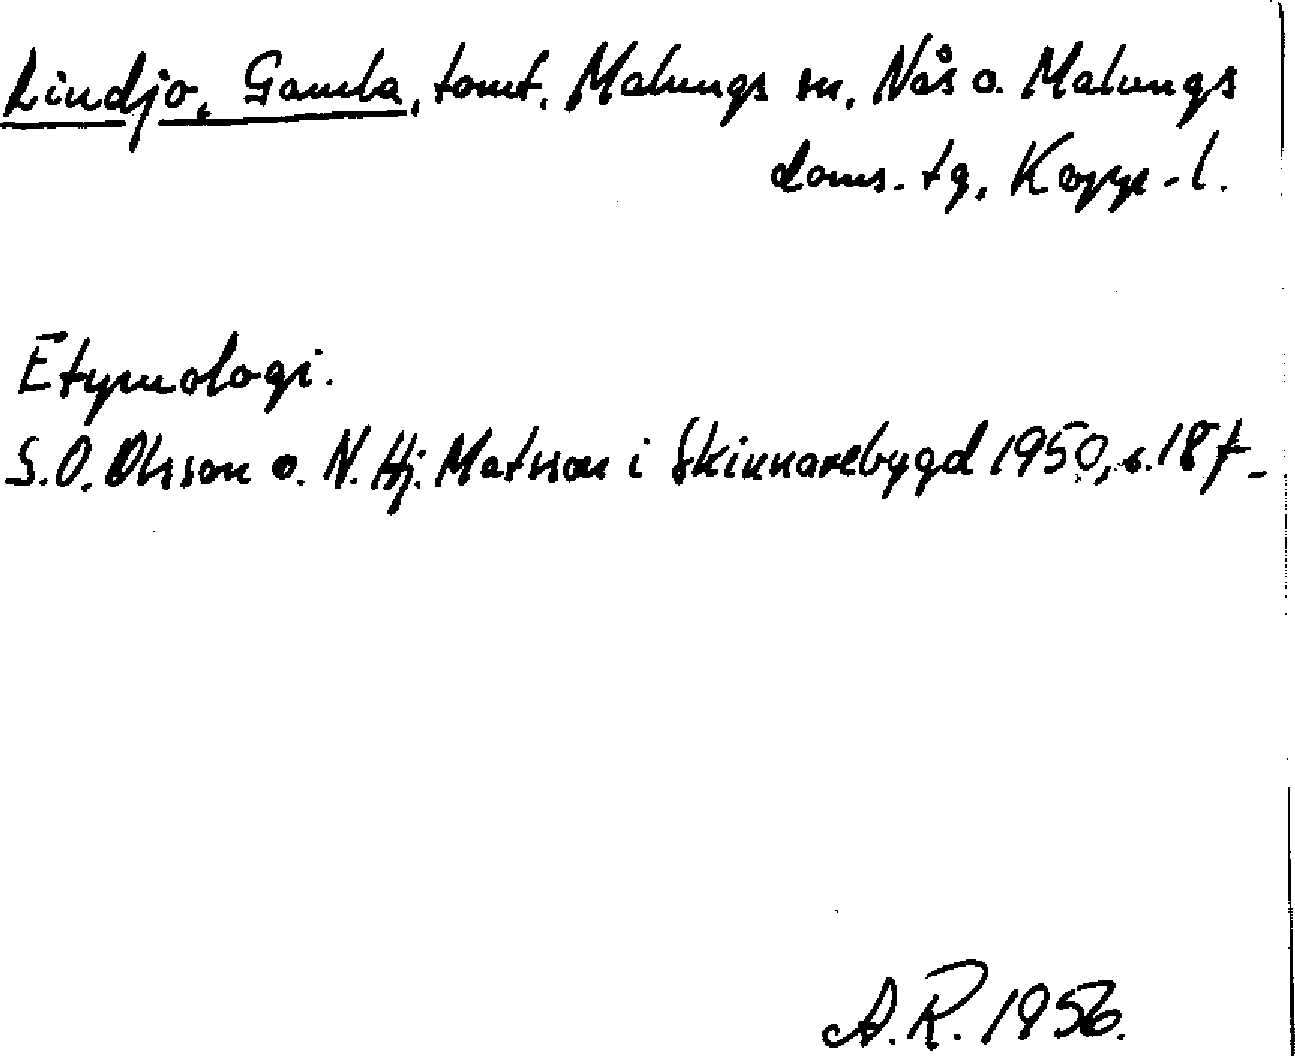 Lindjo, Gamla, tomt. Malungs sn. Nås o. Malungs
doms. tg. Kopp-l.
Etymologi.
S.O. Olsson o. N. Hj. Matsson i Skinnarebygd 1950, s. 18 f-
A.R. 1956.